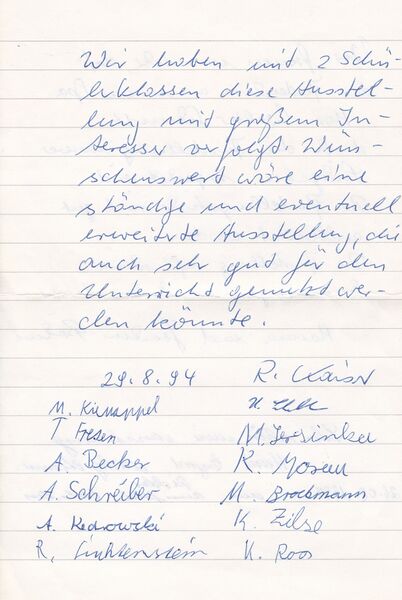 Wir haben mit 2 Schü-
lerklassen diese Ausstel-
lung mit großem In-
teresse verfolgt. Wün-
schenswert wäre eine
ständige und eventuell
erweiterte Ausstellung, die
auch sehr gut für den
Unterricht genutzt wer-
den könnte.
29.8.94 R. Kaiser
M. Kienappel
T Fresen M. Jersinke
A. Becker K. Moreu
A. Schreiber M. Brockmann
A. Kedrowski K. Zilse
R. Lichtenstein K. Roos